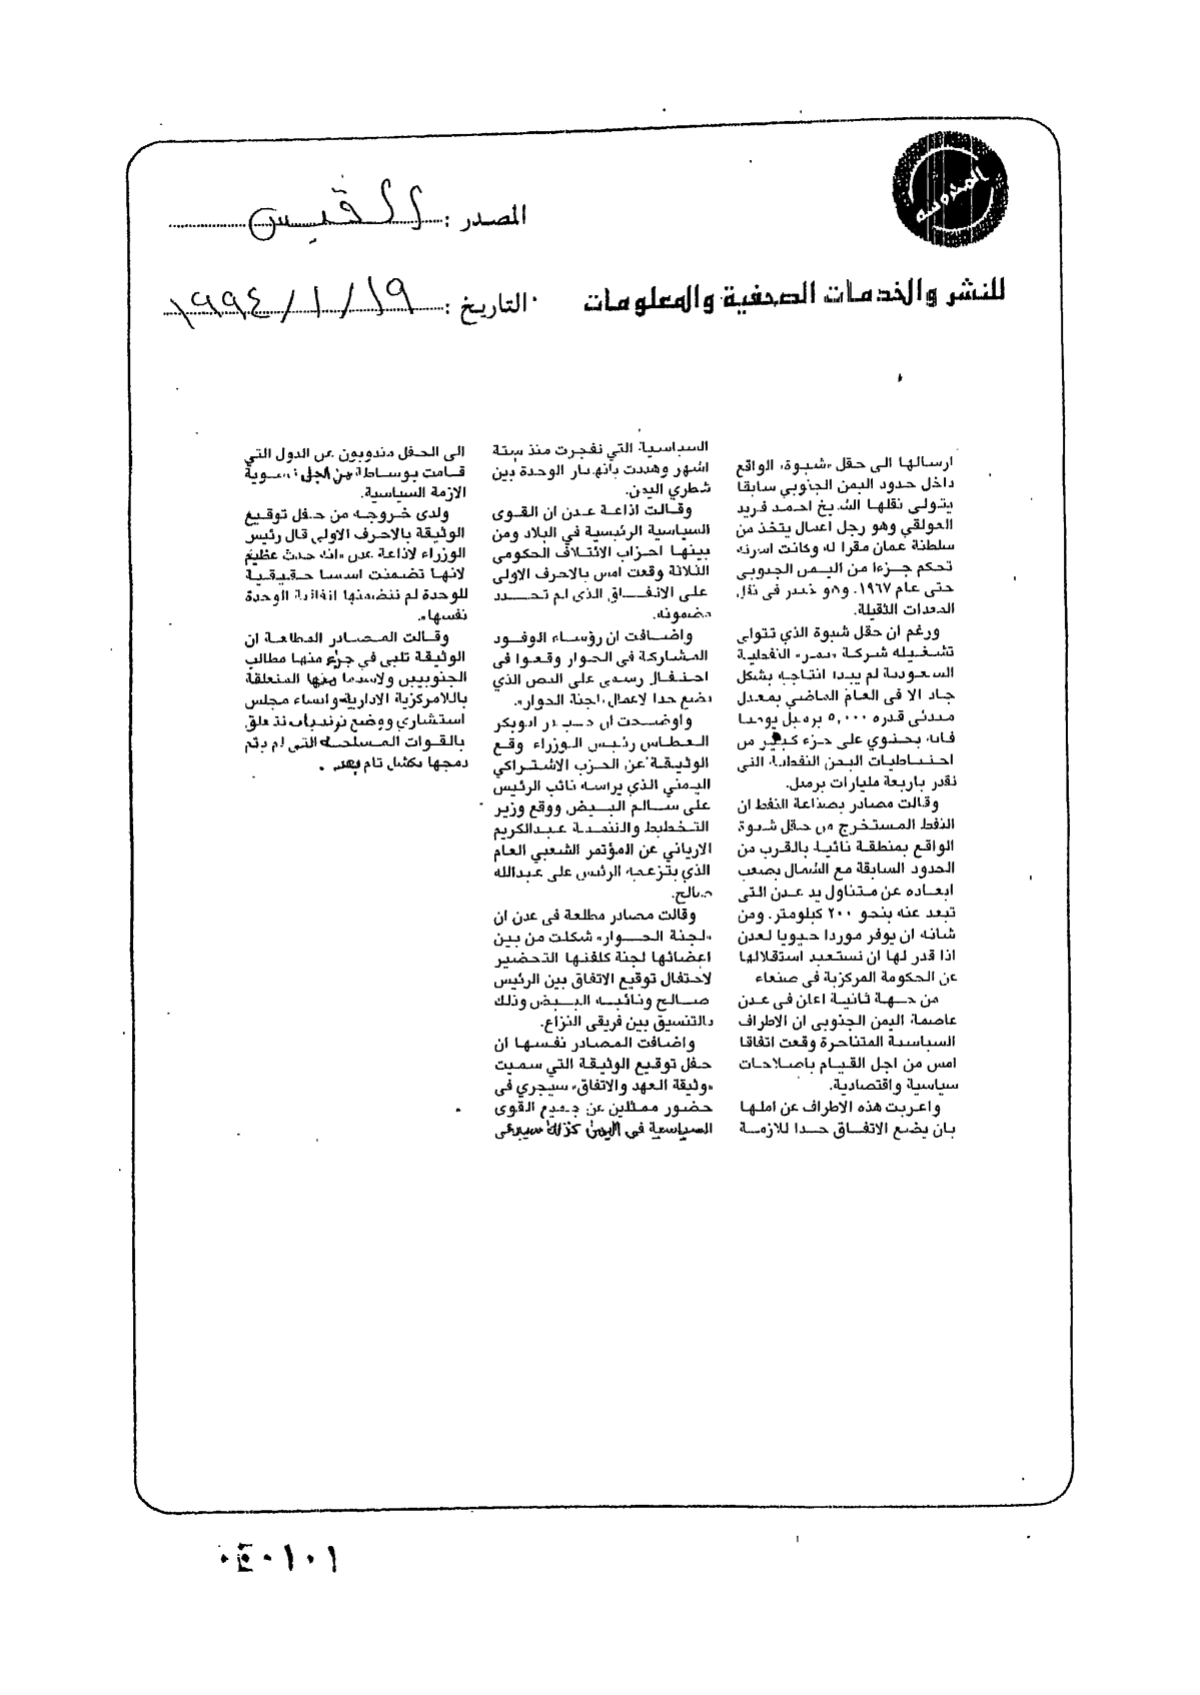 المحروسه
المصدر : القبس
للنشر والخدمات الصحفية والمعلومات
التاريخ : ١٩ / ١ / ١٩٩٤
ارسالها الى حقل «شبوة» الواقع
داخل حدود اليمن الجنوبي سابقا
يتولى نقلها الشيخ احمد فريد
العولقي وهو رجل اعمال يتخذ من
سلطنة عمان مقرا له وكانت اسرته
تحكم جزءا من اليمن الجنوبي
حتى عام ١٩٦٧. وهو خبير في نقل
المعدات الثقيلة.
ورغم ان حقل شبوة الذي تتولى
تشغيله شركة «نمر» النفطية
السعودية لم يبدا انتاجه بشكل
جاد الا في العام الماضي بمعدل
مبدئي قدره ٥,٠٠٠ برميل يوميا
فانه يحتوي على جزء كبير من
احتياطيات اليمن النفطية التي
تقدر باربعة مليارات برميل.
وقالت مصادر بصناعة النفط ان
النفط المستخرج من حقل شبوة
الواقع بمنطقة نائية بالقرب من
الحدود السابقة مع الشمال يصعب
ابعاده عن متناول يد عدن التي
تبعد عنه بنحو ٢٠٠ كيلومتر. ومن
شانه ان يوفر موردا حيويا لعدن
اذا قدر لها ان تستعيد استقلالها
عن الحكومة المركزية في صنعاء
من جهة ثانية اعلن في عدن
عاصمة اليمن الجنوبي ان الاطراف
السياسية المتناحرة وقعت اتفاقا
امس من اجل القيام باصلاحات
سياسية واقتصادية.
واعربت هذه الاطراف عن املها
بان يضع الاتفاق حدا للازمة
السياسية التي تفجرت منذ ستة
اشهر وهددت بانهيار الوحدة بين
شطري اليمن.
وقالت اذاعة عدن ان القوى
السياسية الرئيسية في البلاد ومن
بينها احزاب الائتلاف الحكومي
الثلاثة وقعت امس بالاحرف الاولى
على الاتفاق الذي لم تحدد
مضمونه.
واضافت ان رؤساء الوفود
المشاركة في الحوار وقعوا في
احتفال رسمي على النص الذي
يضع حدا لاعمال «لجنة الحوار».
واوضحت ان حيدر ابوبكر
العطاس رئيس الوزراء وقع
الوثيقة عن الحزب الاشتراكي
اليمني الذي يراسه نائب الرئيس
علي سالم البيض ووقع وزير
التخطيط والتنمية عبدالكريم
الارياني عن المؤتمر الشعبي العام
الذي يتزعمه الرئيس علي عبدالله
صالح.
وقالت مصادر مطلعة في عدن ان
«لجنة الحوار» شكلت من بين
اعضائها لجنة كلفتها التحضير
لاحتفال توقيع الاتفاق بين الرئيس
صالح ونائبه البيض وذلك
بالتنسيق بين فريقي النزاع.
واضافت المصادر نفسها ان
حفل توقيع الوثيقة التي سميت
«وثيقة العهد والاتفاق» سيجري في
حضور ممثلين عن جميع القوى
السياسية في اليمن كذلك سيدعى
الى الحفل مندوبون عن الدول التي
قامت بوساطة من اجل تسوية
الازمة السياسية.
ولدى خروجه من حفل توقيع
الوثيقة بالاحرف الاولى قال رئيس
الوزراء لاذاعة عدن «انه حدث عظيم
لانها تضمنت اسسا حقيقية
للوحدة لم تتضمنها اتفاقية الوحدة
نفسها».
وقالت المصادر المطلعة ان
الوثيقة تلبي في جزء منها مطالب
الجنوبيين ولاسيما منها المتعلقة
باللامركزية الادارية وانشاء مجلس
استشاري ووضع ترتيبات تتعلق
بالقوات المسلحة التي لم يتم
دمجها بكشل تام بعد.
٠٤٠١٠١